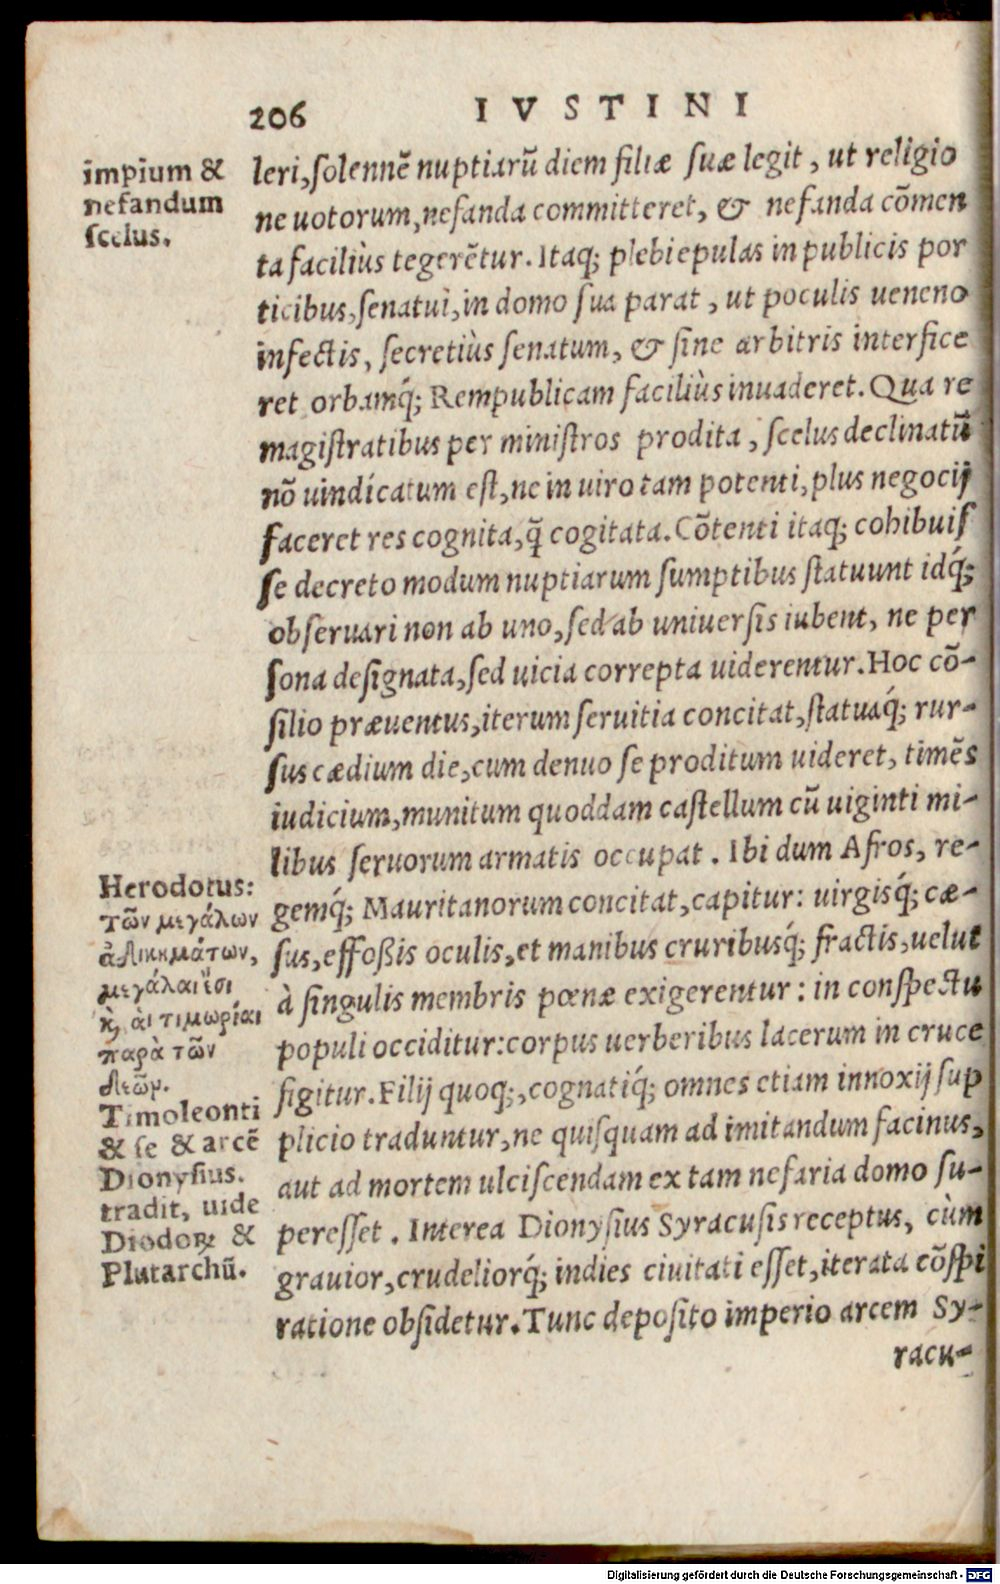 206 IVSTINI
impium &
nefandum
scelus.
leri, solennẽ nuptiarũ diem filiæ suæ legit, ut religio
ne uotorum, nefanda committeret, & nefanda cõmen
ta faciliùs tegerẽtur. Itaq; plebi epulas in publicis por
ticibus, senatui, in domo sua parat, ut poculis ueneno
infectis, secretiùs senatum, & sine arbitris interfice
ret orbamq́; Rempublicam faciliùs inuaderet. Qua re
magistratibus per ministros prodita, scelus declinatũ
nõ uindicatum est, ne in uiro tam potenti, plus negocij
faceret res cognita, q̃ cogitata. Cõtenti itaq; cohibuis
se decreto modum nuptiarum sumptibus statuunt idq́;
obseruari non ab uno, sed ab uniuersis iubent, ne per
sona designata, sed uicia correpta uiderentur. Hoc cõ-
silio præuentus, iterum seruitia concitat, statuaq́; rur-
sus cædium die, cum denuo se proditum uideret, timẽs
iudicium, munitum quoddam castellum cũ uiginti mi-
libus seruorum armatis occupat. Ibi dum Afros, re-
gemq́; Mauritanorum concitat, capitur: uirgisq́; cæ-
sus, effoßis oculis, et manibus cruribusq́; fractis, uelut
à singulis membris pœnæ exigerentur: in conspectu
populi occiditur: corpus uerberibus lacerum in cruce
figitur. Filij quoq;, cognatiq́; omnes etiam innoxij sup
plicio traduntur, ne quisquam ad imitandum facinus,
aut ad mortem ulciscendam ex tam nefaria domo su-
peresset. Interea Dionysius Syracusis receptus, cùm
grauior, crudeliorq́; indies ciuitati esset, iterata cõspi
ratione obsidetur. Tunc deposito imperio arcem Sy-
racu-
Herodotus:
τῶν μεγάλων
ἀδικημάτων,
μεγάλαι εἰσὶ
καὶ αἱ τιμωρίαι
παρὰ τῶν
θεῶν.
Timoleonti
& se & arcẽ
Dionysius.
tradit, uide
Diodoꝝ &
Plutarchũ.
Digitalisierung gefördert durch die Deutsche Forschungsgemeinschaft - DFG